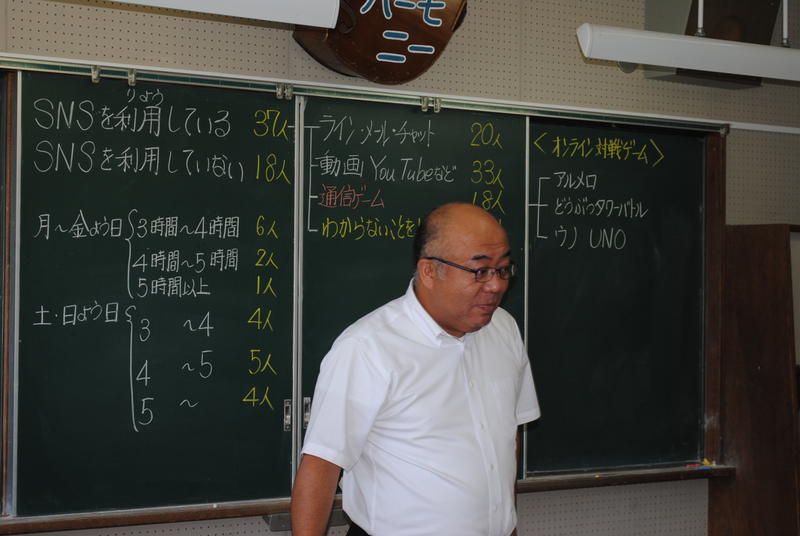 ハーモ
ニー
りよう
SNSを利用している 37人
SNSを利用していない 18人
月～金よう日 3時間～4時間 6人
4時間～5時間 2人
5時間以上 1人
土・日よう日 3 ～4 4人
4 ～5 5人
5 ～ 4人
ライン・メール・チャット 20人
動画 YouTubeなど 33人
通信ゲーム 18人
わからないことを
＜オンライン対戦ゲーム＞
アルメロ
どうぶつタワーバトル
ウノ UNO